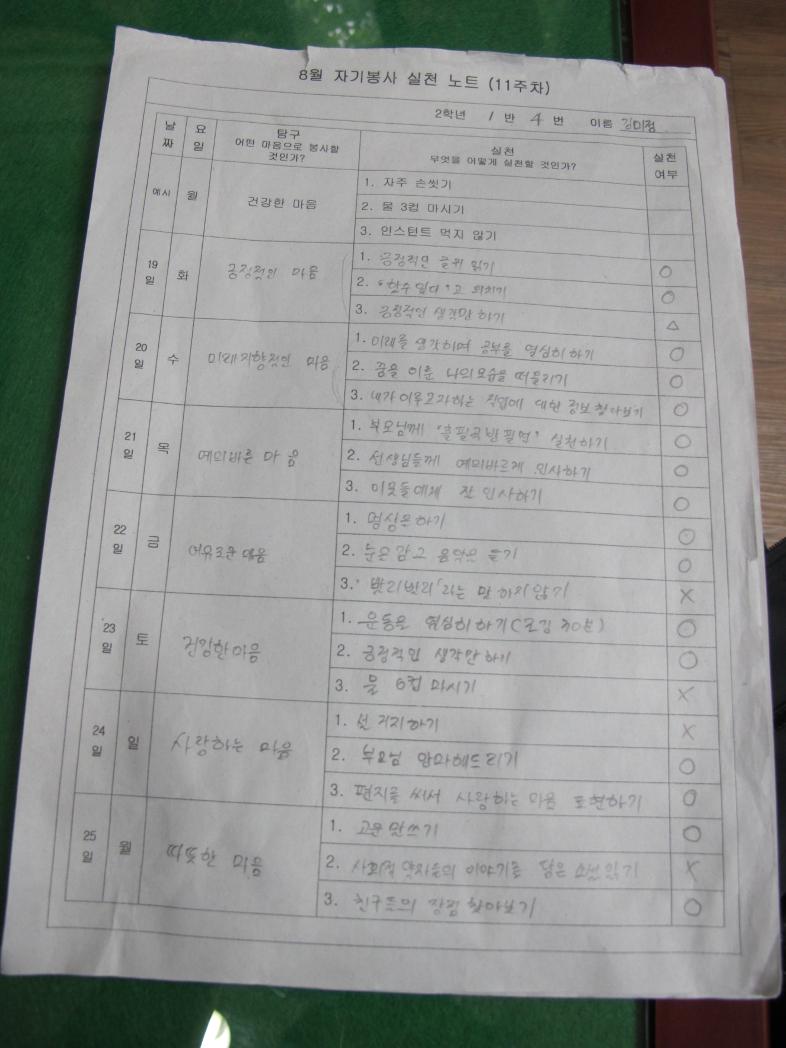 8월 자기봉사 실천 노트 (11주차)
2학년 1 반 4 번 이름 김미정
날짜 요일 탐구 어떤 마음으로 봉사할 것인가? 실천 무엇을 어떻게 실천할 것인가? 실천여부
예시 월 건강한 마음
1. 자주 손씻기
2. 물 3컵 마시기
3. 인스턴트 먹지 않기
19일 화 긍정적인 마음
1. 긍정적인 글귀 읽기 ○
2. "할수 있다"고 외치기 ○
3. 긍정적인 생각만 하기 △
20일 수 미래지향적인 마음
1. 미래를 생각하며 공부를 열심히 하기 ○
2. 꿈을 이룬 나의 모습을 떠올리기 ○
3. 내가 이루고자하는 직업에 대한 정보 찾아보기 ○
21일 목 예의바른 마음
1. 부모님께 "출필곡반필면" 실천하기 ○
2. 선생님들께 예의바르게 인사하기 ○
3. 이웃들에게 잘 인사하기 ○
22일 금 여유로운 마음
1. 명상을하기 ○
2. 눈을 감고 음악을 듣기 ○
3. '빨리빨리'라는 말 하지 않기 X
23일 토 건강한 마음
1. 운동을 열심히 하기 (조깅 30분) ○
2. 긍정적인 생각만 하기 ○
3. 물 6컵 마시기 X
24일 일 사랑하는 마음
1. 설거지하기 X
2. 부모님 안마해드리기 ○
3. 편지를 써서 사랑하는 마음 표현하기 ○
25일 월 따뜻한 마음
1. 고운 말쓰기 ○
2. 사회적 약자들의 이야기를 담은 소설 읽기 X
3. 친구들의 장점 찾아보기 ○